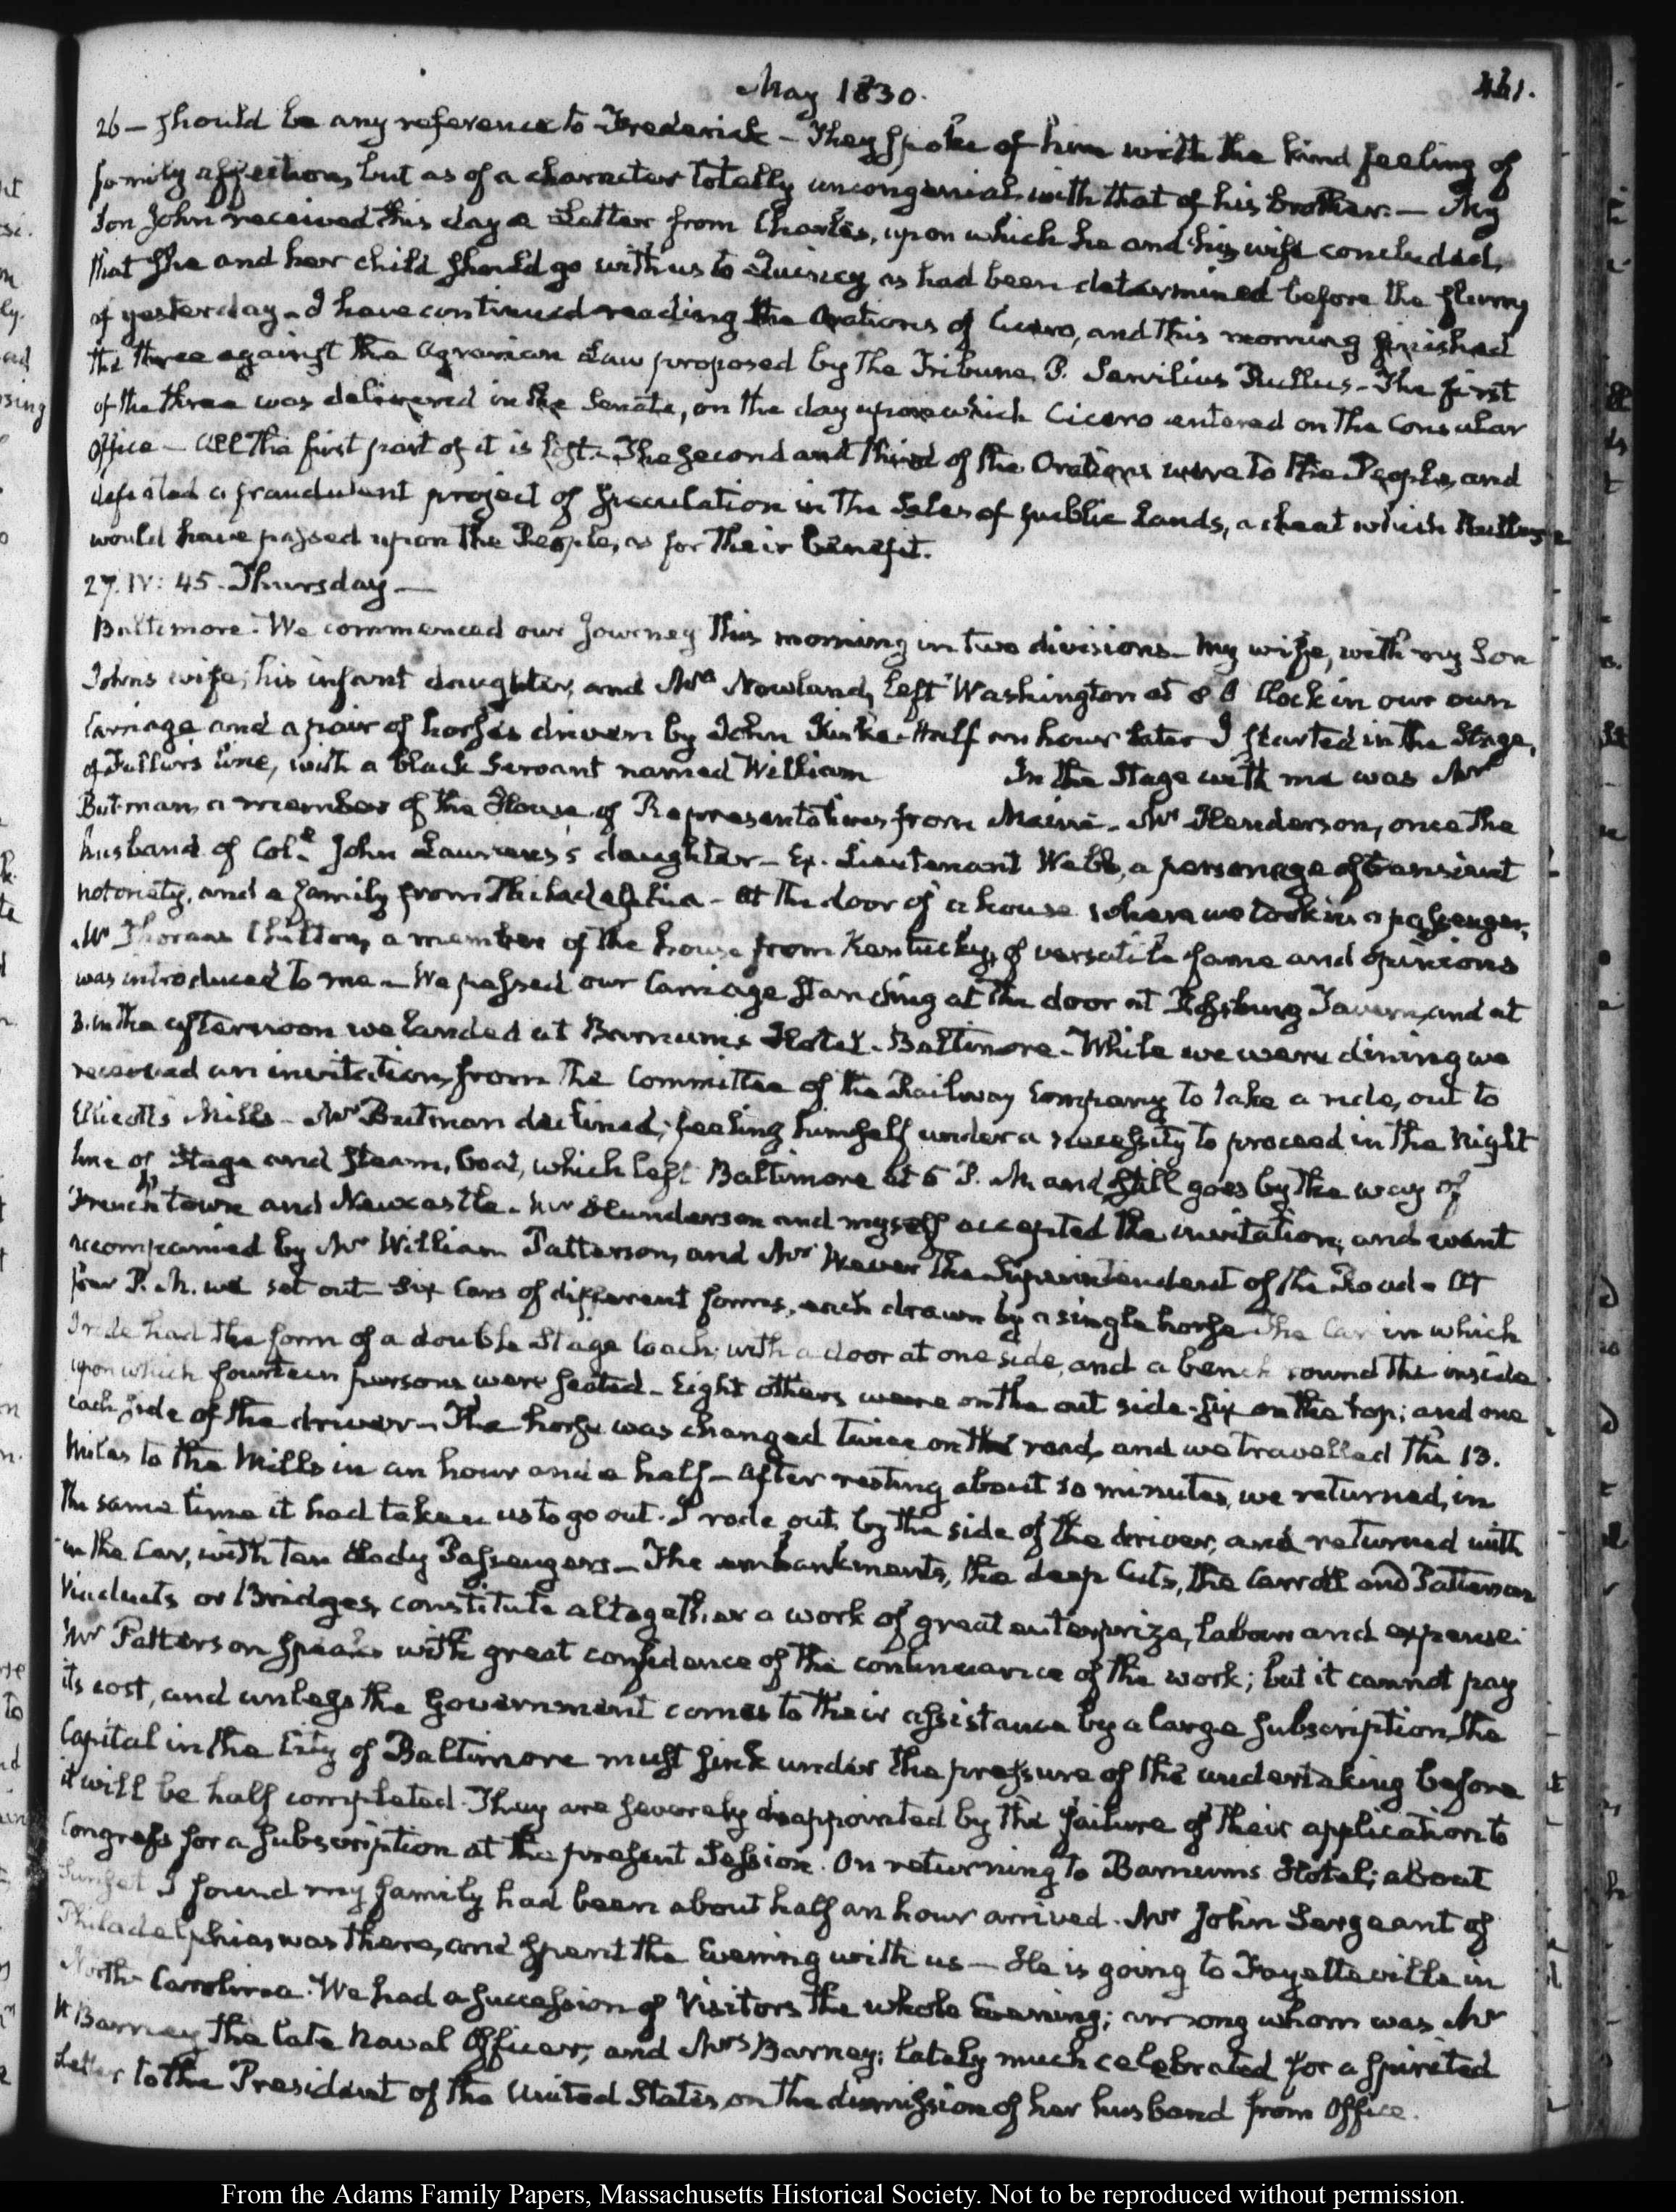 May 1830.
461.
26 — should be any reference to Frederick — They spoke of him with the kind feeling of
family affection, but as of a character totally uncongenial with that of his brother. — My
Son John received this day a Letter from Charles, upon which he and his wife concluded,
that she and her child should go with us to Quincy as had been determined before the flurry
of yesterday. I have continued reading the Orations of Cicero, and this morning finished
the three against the Agrarian Law proposed by the Tribune, P. Servilius Rullus — The first
of the three was delivered in the Senate, on the day upon which Cicero entered on the Consular
Office — All the first part of it is lost. The second and third of the Orations were to the People, and
defeated a fraudulent project of speculation in the Sales of public Lands, a cheat which Rullus
would have passed upon the People, as for their benefit.
27. IV: 45. Thursday —
Baltimore. We commenced our Journey this morning in two divisions — My wife, with my Son
Johns wife, his infant daughter, and Mrs Nowland, left Washington at 8 O'Clock in our own
Carriage and a pair of horses driven by John Kirke. Half an hour later I started in the Stage,
of Fullers line, with a black Servant named William In the Stage with me was Mr
Butman, a member of the House of Representatives from Maine — Mr Henderson, once the
husband of Col.l John Laurens's daughter — Ex. Lieutenant Webb, a personage of transient
notoriety, and a family from Philadelphia — At the door of a house where we took in a passenger,
Mr Thomas Chilton, a member of the house from Kentucky, of versatile fame and opinions
was introduced to me — We passed our Carriage standing at the door at Rossburg Tavern, and at
3. in the afternoon we landed at Barnum's Hotel. Baltimore. While we were dining we
received an invitation from the Committee of the Railway Company to take a ride, out to
Ellicott's Mills — Mr Butman declined; feeling himself under a necessity to proceed in the night
line of Stage and steam, boat, which left Baltimore at 5 P. M. and still goes by the way of
French town and Newcastle. Mr Henderson and myself accepted the invitation; and went
accompanied by Mr William Patterson, and Mr Wever the Superintendent of the Road — At
four P. M. we set out Six Cars of different forms, each drawn by a single horse The Car in which
I rode had the form of a double Stage Coach; with a door at one side, and a bench round the inside
upon which fourteen persons were seated — Eight others were on the out side — six on the top; and one
each side of the driver — The horse was changed twice on the road, and we travelled the 13.
Miles to the Mills in an hour and a half — After resting about 10 minutes, we returned, in
the same time it had taken us to go out. I rode out by the side of the driver, and returned with
in the Car, with ten Lady Passengers — The embankments, the deep Cuts, the Carroll and Patterson
Viaducts or Bridges, constitute altogether a work of great enterprize, labour and expense.
Mr Patterson speaks with great confidence of the continuance of the work; but it cannot pay
its cost, and unless the Government comes to their assistance by a large subscription, the
Capital in the City of Baltimore must sink under the pressure of the undertaking before
it will be half completed. They are severely disappointed by the failure of their application to
Congress for a subscription at the present Session. On returning to Barnums Hotel; about
Sunset I found my family had been about half an hour arrived. Mr John Sergeant of
Philadelphia, was there, and spent the Evening with us — He is going to Fayetteville in
North Carolina. We had a succession of Visitors the whole Evening; among whom was Mr
Barney the late Naval Officer, and Mrs Barney; lately much celebrated for a spirited
Letter to the President of the United States, on the dismission of her husband from Office.
From the Adams Family Papers, Massachusetts Historical Society. Not to be reproduced without permission.